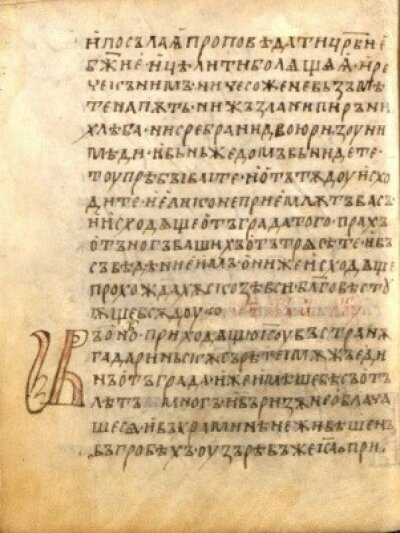 ꙇпосълаѧ проповѣдати цр҃ьстви е
бж҃ие · и цѣлити болѧщаѧ · и ре
че къ нимъ · ничесоже не възьмѣ
те на пѫть · ни жьзла ни пирꙑ ни
хлѣба · ни сребра ни двою ризоу ни
мѣди · и вь н҄ьже домъ вьнидете ·
тоу прѣбꙑваите · и отътѫдоу исхо
дите · и елико не приемлѭтъ васъ
исходѧще отъ града того · прахъ
отъ ногъ вашихъ отътрѧсѣте · въ
съвѣдѣние имъ · они же исходѧще
прохождаахѫ скозѣ вьси · благовѣству
ѭще вьсѫдоу ·
Въ оно · приходѧщю іс҃оу въ странѫ
гадариньскѫ сърѣте і мѫжь еди
нъ отъ града · иже имѣше бѣсъ отъ
лѣтъ многъ · и въ ризѫ не облача
ше сѧ · и въ храминѣ не живѣше нъ
въ гробѣхъ · оузьрѣвъ же іс҃а · при